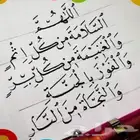 اللهم
السلامة من كل إثم
والغنيمة من كل بر
والفوز بالجنة
والنجاة من النار